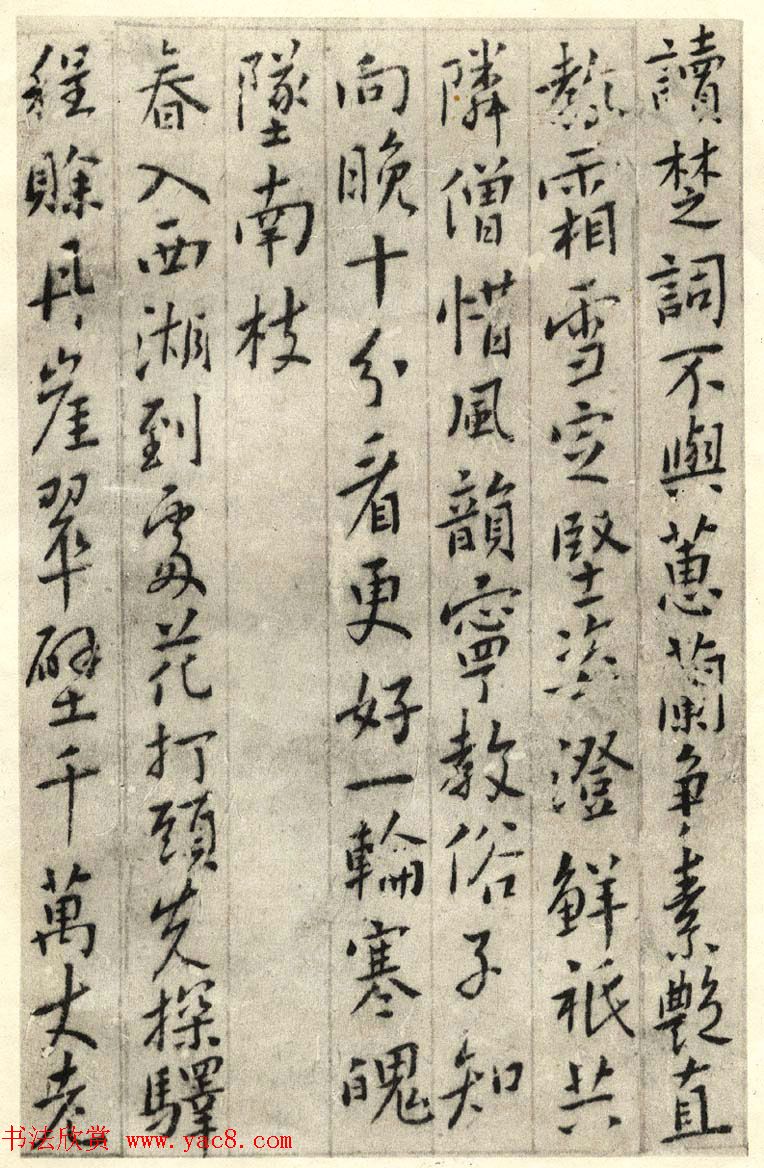 讀楚詞不與蕙蘭爭素艷直
熬霜雪定堅姿澄鮮祇共
隣僧惜風韻寧教俗子知
向晚十分看更好一輪寒魄
墜南枝
春入西湖到處花打頭先探驛
程賖丹崖翠壁千萬丈老
书法欣赏 www.yac8.com